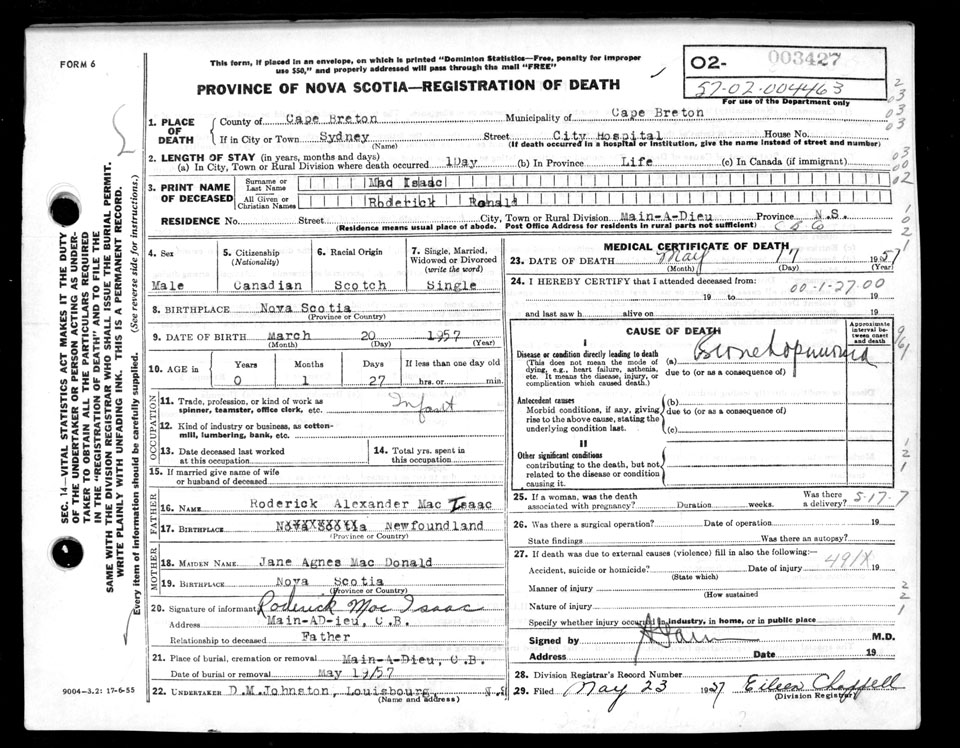 FORM 6
This form, if placed in an envelope, on which is printed "Dominion Statistics—Free, penalty for improper
use $50," and properly addressed will pass through the mail "FREE"
PROVINCE OF NOVA SCOTIA—REGISTRATION OF DEATH
O2- 003427
57-02-004463
For use of the Department only
1. PLACE OF DEATH
County of Cape Breton Municipality of Cape Breton
If in City or Town Sydney Street City Hospital House No.
(Name) (If death occurred in a hospital or institution, give the name instead of street and number)
2. LENGTH OF STAY (in years, months and days)
(a) In City, Town or Rural Division where death occurred 1Day (b) In Province Life (c) In Canada (if immigrant)
3. PRINT NAME OF DECEASED
Surname or Last Name Mac Isaac
All Given or Christian Names Roderick Ronald
RESIDENCE No. Street City, Town or Rural Division Main-A-Dieu Province N.S.
(Residence means usual place of abode. Post Office Address for residents in rural parts not sufficient) C B Co
4. Sex
Male
5. Citizenship
(Nationality)
Canadian
6. Racial Origin
Scotch
7. Single, Married, Widowed or Divorced
(write the word)
Single
8. BIRTHPLACE Nova Scotia
(Province or Country)
9. DATE OF BIRTH March 20 1957
(Month) (Day) (Year)
10. AGE in
Years Months Days If less than one day old
0 1 27 hrs. or min.
OCCUPATION
11. Trade, profession, or kind of work as
spinner, teamster, office clerk, etc. Infant
12. Kind of industry or business, as cotton-
mill, lumbering, bank, etc.
13. Date deceased last worked
at this occupation
14. Total yrs. spent in
this occupation
15. If married give name of wife
or husband of deceased
FATHER
16. NAME Roderick Alexander Mac Isaac
17. BIRTHPLACE Newfoundland
(Province or Country)
MOTHER
18. MAIDEN NAME Jane Agnes Mac Donald
19. BIRTHPLACE Nova Scotia
(Province or Country)
20. Signature of informant Roderick Mac Isaac
Address Main-AD-ieu, C.B.
Relationship to deceased Father
21. Place of burial, cremation or removal Main-A-Dieu, C.B.
Date of burial or removal May 19/57
22. UNDERTAKER D.M.Johnston, Louisbourg, N.S
(Name and address)
MEDICAL CERTIFICATE OF DEATH
23. DATE OF DEATH May 17 1957
(Month) (Day) (Year)
24. I HEREBY CERTIFY that I attended deceased from:
00-1-27.00
19 to 19
and last saw h alive on 19
CAUSE OF DEATH
Approximate interval between onset and death
I
Disease or condition directly leading to death
(This does not mean the mode of
dying, e.g., heart failure, asthenia,
etc. It means the disease, injury, or
complication which caused death.)
(a) Bronchopneumonia
due to (or as a consequence of)
Antecedent causes
Morbid conditions, if any, giving
rise to the above cause, stating the
underlying condition last.
(b)
due to (or as a consequence of)
(c)
II
Other significant conditions
contributing to the death, but not
related to the disease or condition
causing it.
25. If a woman, was the death
associated with pregnancy? Duration weeks. Was there a delivery? 5-17-7
26. Was there a surgical operation? Date of operation 19
State findings Was there an autopsy?
27. If death was due to external causes (violence) fill in also the following:—
Accident, suicide or homicide? Date of injury 491X 19
(State which)
Manner of injury
(How sustained
Nature of injury
Specify whether injury occurred in industry, in home, or in public place
Signed by M.D.
Address Date 19
28. Division Registrar's Record Number
29. Filed May 23 1957 Eileen Chappell
(Division Registrar)
9004-3.2: 17-6-55
SEC. 14—VITAL STATISTICS ACT MAKES IT THE DUTY
OF THE UNDERTAKER OR PERSON ACTING AS UNDER-
TAKER TO OBTAIN ALL THE PARTICULARS REQUIRED
IN THE "REGISTRATION OF DEATH" AND TO FILE THE
SAME WITH THE DIVISION REGISTRAR WHO SHALL ISSUE THE BURIAL PERMIT.
WRITE PLAINLY WITH UNFADING INK. THIS IS A PERMANENT RECORD.
Every item of information should be carefully supplied. (See reverse side for instructions.)